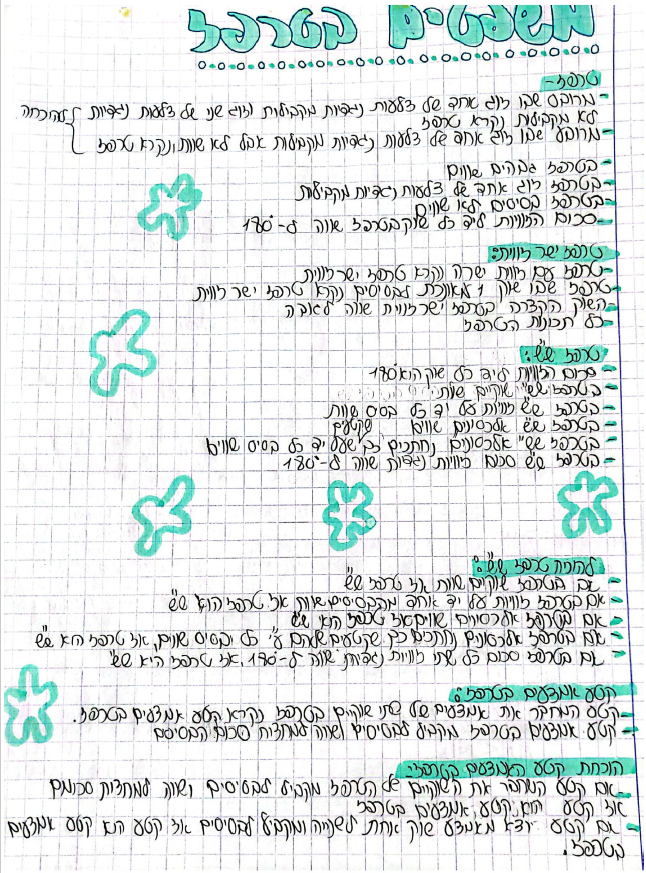 משפטים בטרפז
טרפז-
- מרובע שבו זוג אחד של צלעות נגדיות מקבילות וזוג שני של צלעות נגדיות
לא מקבילות נקרא טרפז
להוכחה
- מרובע שבו זוג אחד של צלעות נגדיות מקבילות אבל לא שוות, נקרא טרפז
- בטרפז גבהים שווים
- בטרפז זוג אחד של צלעות נגדיות מקבילות
- בטרפז בסיסים לא שווים
- סכום הזוויות ליד כל שוק בטרפז שווה ל-180°
טרפז ישר זווית:
- טרפז עם זווית ישרה נקרא טרפז ישר זווית
- טרפז שבו שוק 1 מאונכת לבסיסים נקרא טרפז ישר זווית
- השוק הקצרה בטרפז ישר זווית שווה לגובה
- כל תכונות הטרפז
טרפז שש:
- סכום הזוויות ליד כל שוק הוא 180°
- בטרפז שש שוקיים שוות
- בטרפז שש זוויות על יד כל בסיס שוות
- בטרפז שש אלכסונים שווים
- בטרפז שש אלכסונים נחתכים כך שקטעים שעל יד כל בסיס שווים
- בטרפז שש סכום זוויות נגדיות שווה ל-180°
להוכיח טרפז שש:
- אם בטרפז שוקיים שוות אז טרפז שש
- אם בטרפז זוויות על יד אחד מהבסיסים שוות אז טרפז הוא שש
- אם בטרפז אלכסונים שווים אז טרפז הוא שש
- אם בטרפז אלכסונים נחתכים כך שקטעים שלהם ע"י כל בסיס שווים, אז טרפז הוא שש
- אם בטרפז סכום כל שתי זוויות נגדיות שווה ל-180°, אז טרפז הוא שש
קטע אמצעים בטרפז:
- קטע המחבר את אמצעים של שתי שוקיים בטרפז נקרא קטע אמצעים בטרפז.
- קטע אמצעים בטרפז מקביל לבסיסים ושווה למחצית סכום הבסיסים
הוכחת קטע האמצעים בטרפז:
- אם קטע המחבר את השוקיים של הטרפז מקביל לבסיסים ושווה למחצית סכומם
אז קטע הוא קטע אמצעים בטרפז
- אם קטע יוצא מאמצע שוק אחת לשנייה ומקביל לבסיסים אז קטע הוא קטע אמצעים
בטרפז.